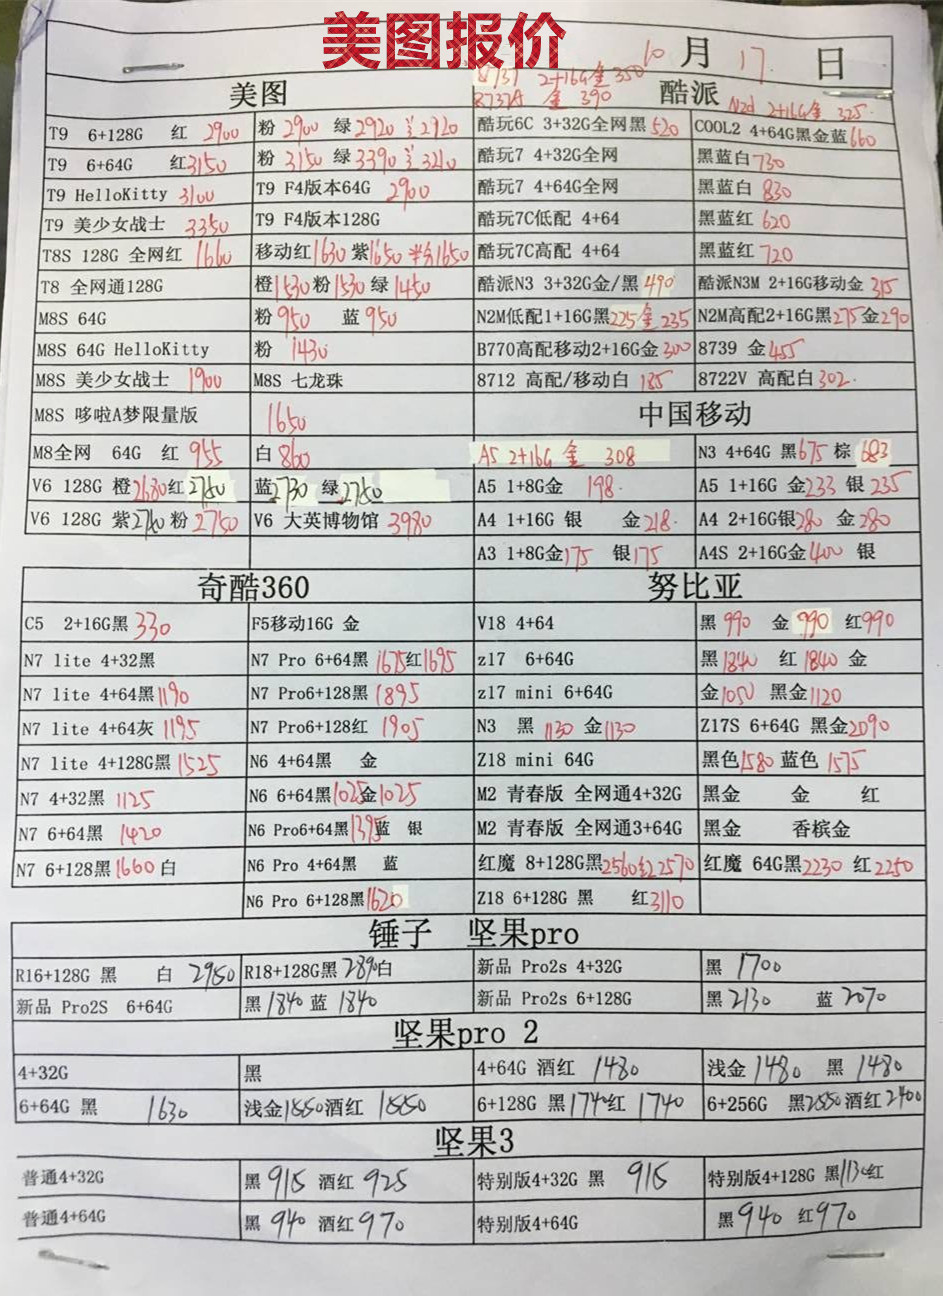 美图报价
10 月 17 日
8737 2+16G金 350
8737A 金 390
美图 酷派 N2d 2+16G金 325
T9 6+128G 红 2900 粉 2900 绿 2920 2920 酷玩6C 3+32G全网黑 520 COOL2 4+64G黑金蓝 660
T9 6+64G 红 3150 粉 3150 绿 3390 3210 酷玩7 4+32G全网 黑蓝白 730
T9 HelloKitty 3100 T9 F4版本64G 2900 酷玩7 4+64G全网 黑蓝白 830
T9 美少女战士 3350 T9 F4版本128G 酷玩7C低配 4+64 黑蓝红 620
T8S 128G 全网红 1660 移动红 1630 紫 1650 1650 酷玩7C高配 4+64 黑蓝红 720
T8 全网通128G 橙 1530 粉 1530 绿 1450 酷派N3 3+32G金/黑 490 酷派N3M 2+16G移动金 315
M8S 64G 粉 950 蓝 950 N2M低配1+16G黑 225 金 235 N2M高配2+16G黑 275 金 290
M8S 64G HelloKitty 粉 1430 B770高配移动2+16G金 300 8739 金 455
M8S 美少女战士 1900 M8S 七龙珠 8712 高配/移动白 185 8722V 高配白 302
M8S 哆啦A梦限量版 1650 中国移动
M8全网 64G 红 955 白 860 A5 2+16G 金 308 N3 4+64G 黑 675 棕 683
V6 128G 橙 2680 红 2750 蓝 2730 绿 2750 A5 1+8G金 198 A5 1+16G 金 233 银 235
V6 128G 紫 2740 粉 2750 V6 大英博物馆 3980 A4 1+16G 银 金 218 A4 2+16G银 280 金 280
A3 1+8G金 175 银 175 A4S 2+16G金 400 银
奇酷360 努比亚
C5 2+16G黑 330 F5移动16G 金 V18 4+64 黑 990 金 990 红 990
N7 lite 4+32黑 N7 Pro 6+64黑 1675 红 1695 z17 6+64G 黑 1840 红 1840 金
N7 lite 4+64黑 1190 N7 Pro6+128黑 1895 z17 mini 6+64G 金 1050 黑金 1120
N7 lite 4+64灰 1195 N7 Pro6+128红 1905 N3 黑 1130 金 1130 Z17S 6+64G 黑金 2090
N7 lite 4+128G黑 1525 N6 4+64黑 金 Z18 mini 64G 黑色 1580 蓝色 1575
N7 4+32黑 1125 N6 6+64黑 1025 金 1025 M2 青春版 全网通4+32G 黑金 金 红
N7 6+64黑 1420 N6 Pro6+64黑 1395 蓝 银 M2 青春版 全网通3+64G 黑金 香槟金
N7 6+128黑 1660 白 N6 Pro 4+64黑 蓝 红魔 8+128G黑 2560 红 2570 红魔 64G黑 2230 红 2250
N6 Pro 6+128黑 1620 Z18 6+128G 黑 红 3110
锤子 坚果pro
R16+128G 黑 白 2950 R18+128G黑 2890 白 新品 Pro2s 4+32G 黑 1700
新品 Pro2S 6+64G 黑 1840 蓝 1840 新品 Pro2s 6+128G 黑 2130 蓝 2070
坚果pro 2
4+32G 黑 4+64G 酒红 1480 浅金 1480 黑 1480
6+64G 黑 1630 浅金 1550 酒红 1550 6+128G 黑 1740 红 1740 6+256G 黑 2550 酒红 2400
坚果3
普通4+32G 黑 915 酒红 925 特别版4+32G 黑 915 特别版4+128G 黑 1130 红
普通4+64G 黑 940 酒红 970 特别版4+64G 黑 940 红 970